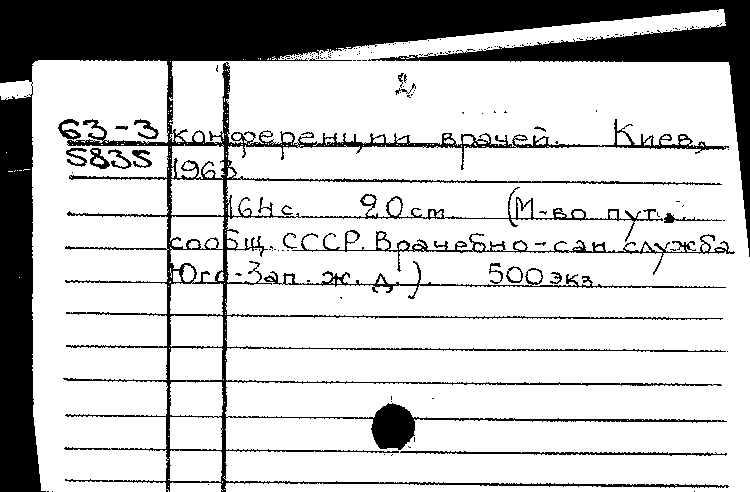 2
63-3 конференции врачей. Киев,
5835 1963.
164 с. 20 см (М-во пут.
сообщ. СССР. Врачебно-сан. служба
Юго-Зап. ж. д.). 500 экз.